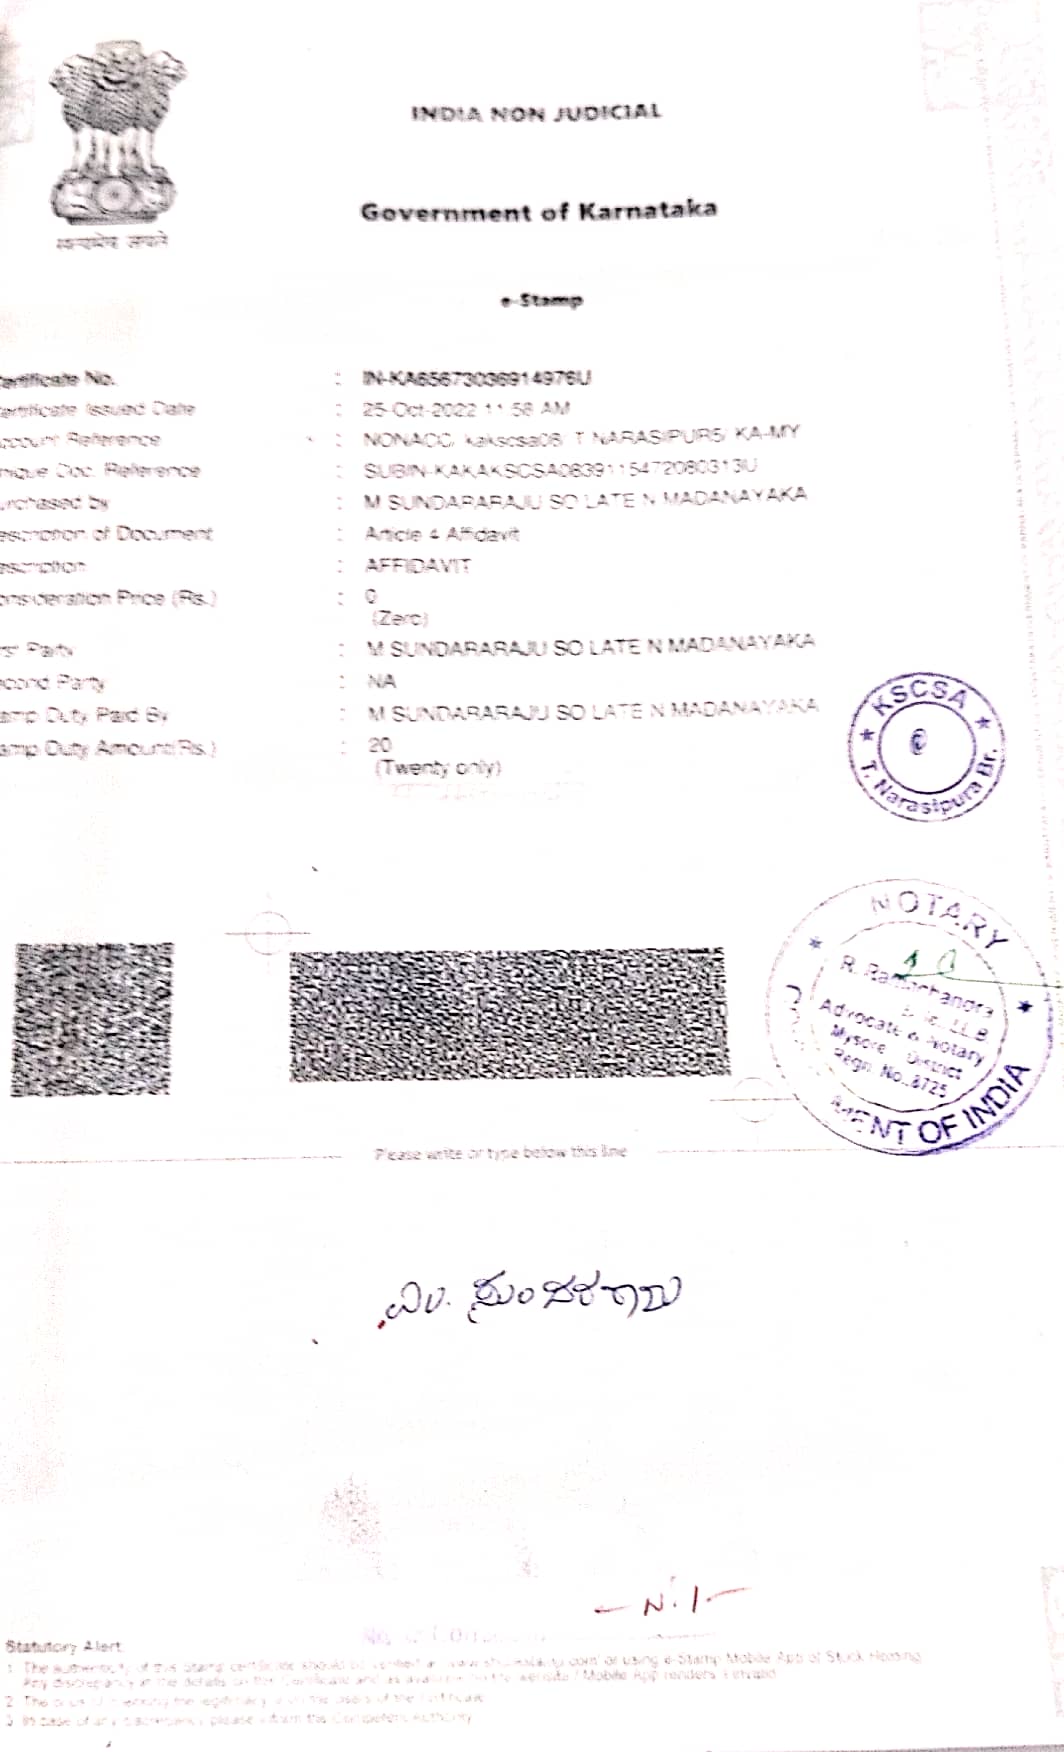 सत्यमेव जयते
INDIA NON JUDICIAL
Government of Karnataka
e-Stamp
ertificate No. : IN-KA65673036914976U
ertificate Issued Date : 25-Oct-2022 11:58 AM
ccount Reference : NONACC/ kakscsa08/ T NARASIPUR5/ KA-MY
nique Doc. Reference : SUBIN-KAKAKSCSA0839115472080313U
urchased by : M SUNDARARAJU SO LATE N MADANAYAKA
escription of Document : Article 4 Affidavit
escription : AFFIDAVIT
onsideration Price (Rs.) : 0
(Zero)
rst Party : M SUNDARARAJU SO LATE N MADANAYAKA
econd Party : NA
amp Duty Paid By : M SUNDARARAJU SO LATE N MADANAYAKA
amp Duty Amount(Rs.) : 20
(Twenty only)
KSCSA
T. Narasipura Br.
NOTARY
R. Ramachandra
Advocate & Notary
Mysore District
Regn. No. 8725
MENT OF INDIA
Please write or type below this line
ಎಂ. ಸುಂದರರಾಜು
- Nil -
Statutory Alert:
1. The authenticity of this Stamp certificate should be verified at or using e-Stamp Mobile App of Stock Holding.
Any discrepancy in the details on this Certificate and as available on the website / Mobile App renders it invalid.
2. The onus of checking the legitimacy is on the users of the certificate.
3. In case of any discrepancy please inform the Competent Authority.